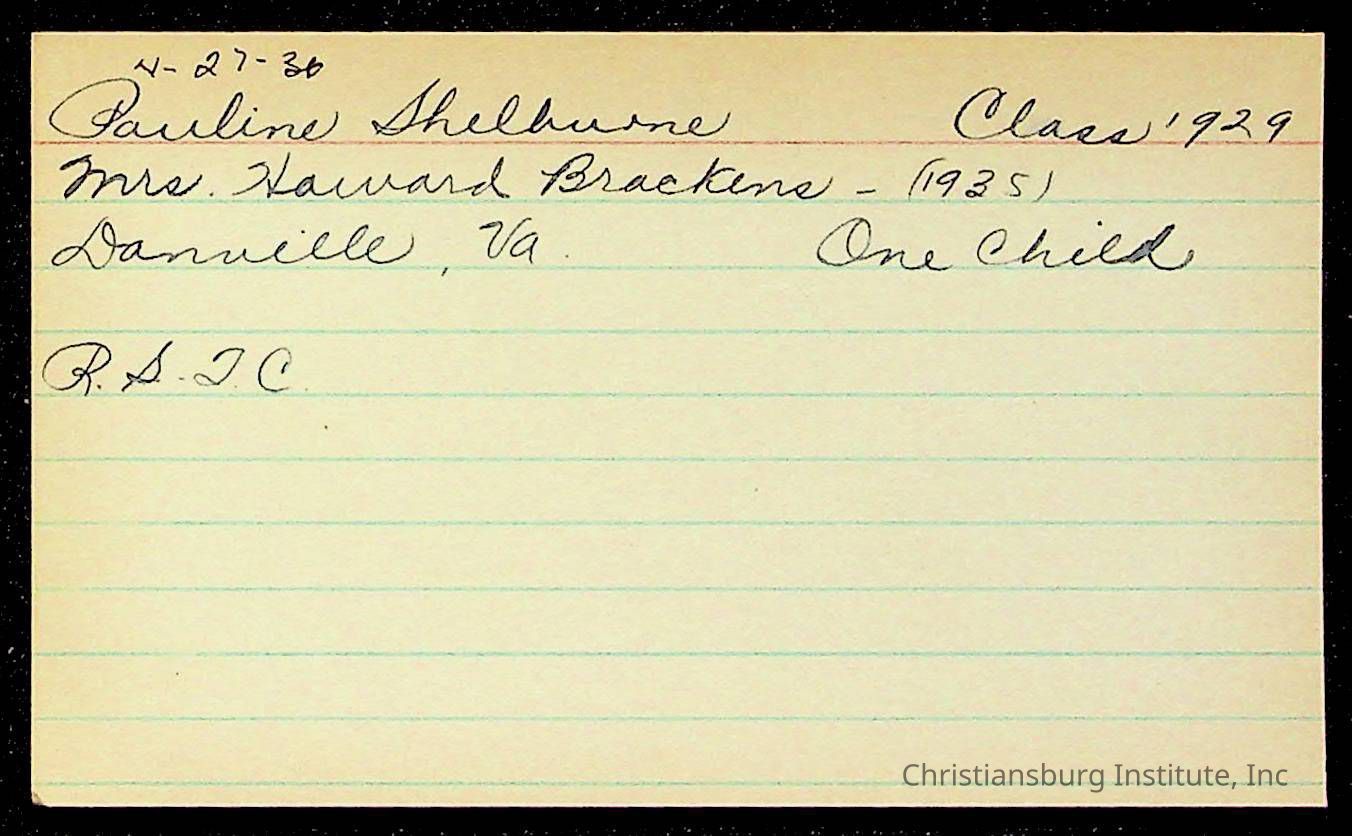 4-27-36
Pauline Shelburne Class '929
Mrs. Howard Brackens - (1935)
Danville, Va. One Child
R. S. T. C.
Christiansburg Institute, Inc